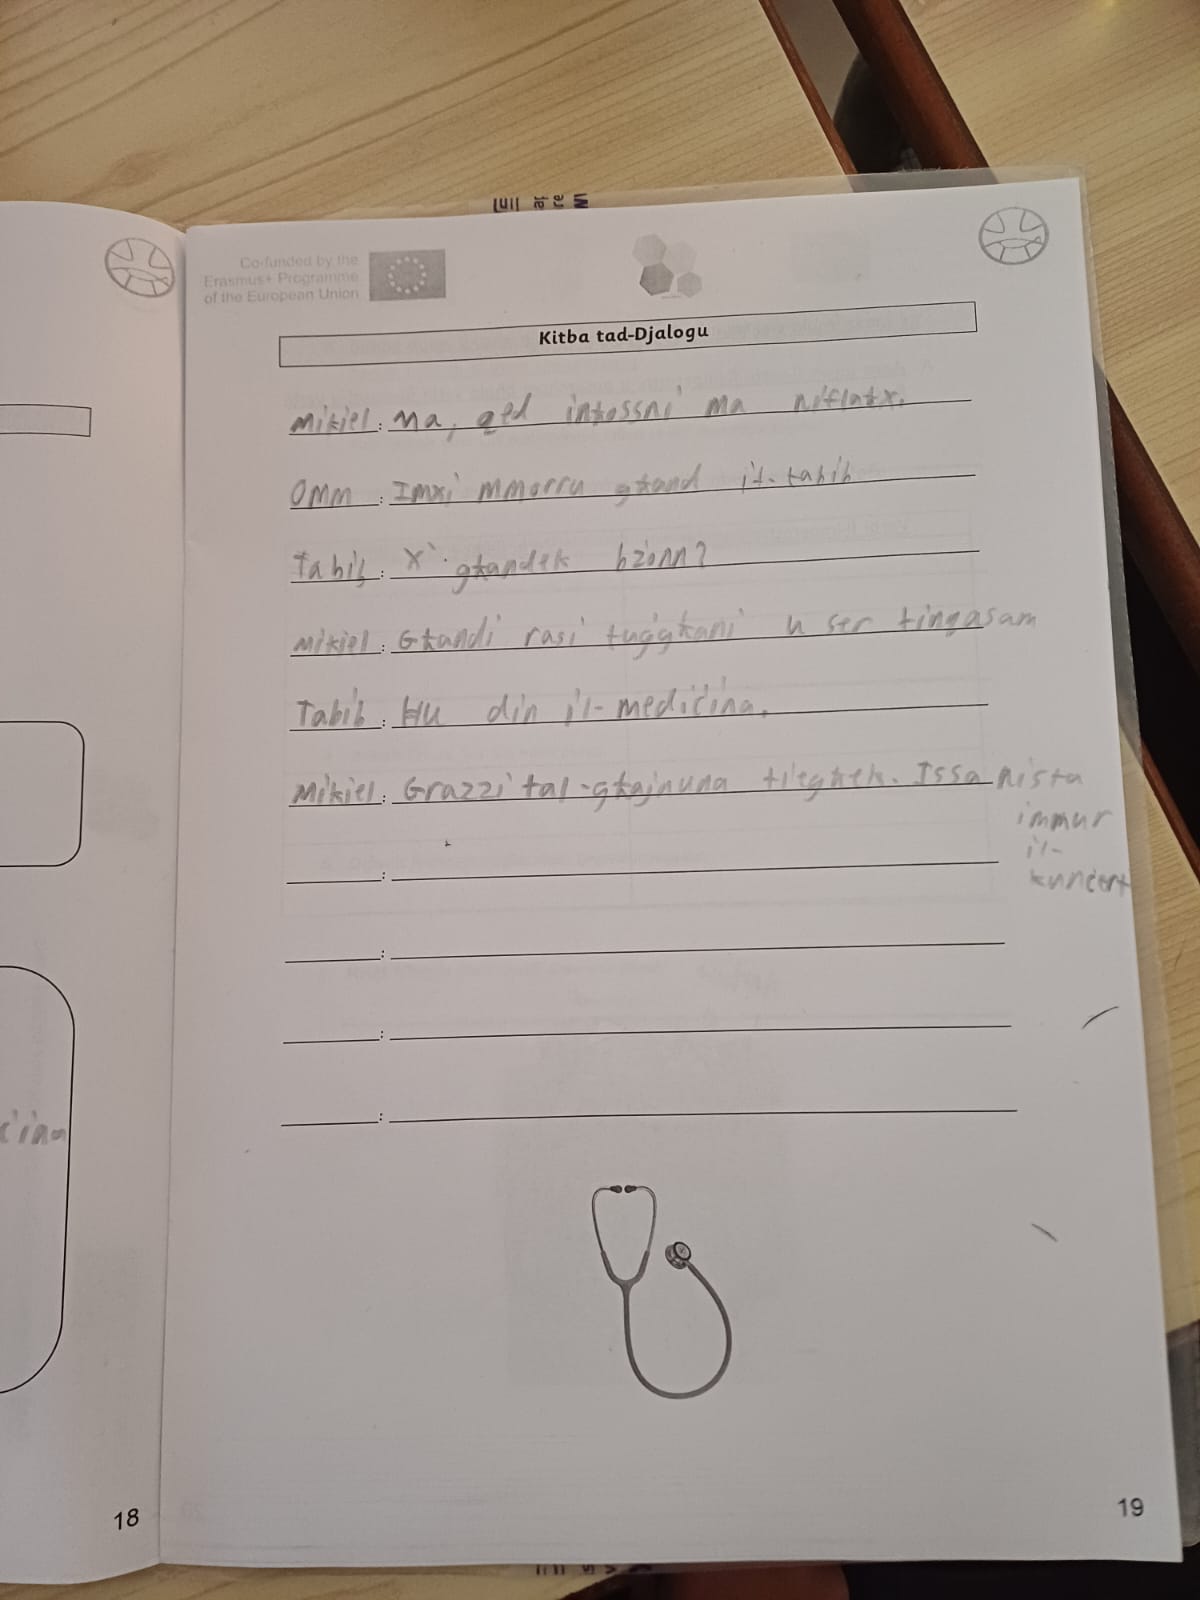 Co-funded by the
Erasmus+ Programme
of the European Union
Kitba tad-Djalogu
Mikiel: Ma, qed intossni ma niflaħx.
Omm: Imxi mmorru għand it-tabib
Tabib: X' għandek bżonn?
Mikiel: Għandi rasi tuġgħani u ser tingasam
Tabib: Hu din il-mediċina.
Mikiel: Grazzi tal-għajnuna tiegħek. Issa nista
immur
il-
kunċert
18
19